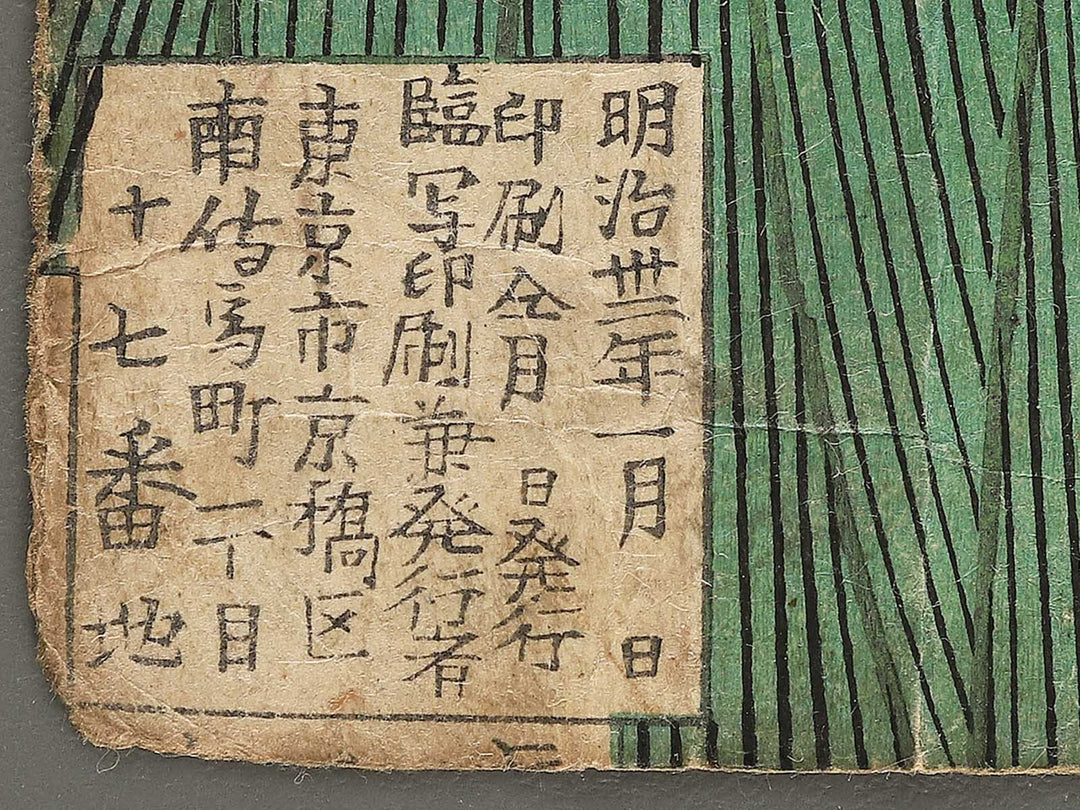 明治丗一年一月　日
印刷仝月　日発行
臨写印刷兼発行者
東京市京橋区
南伝馬町一丁目
十七番地